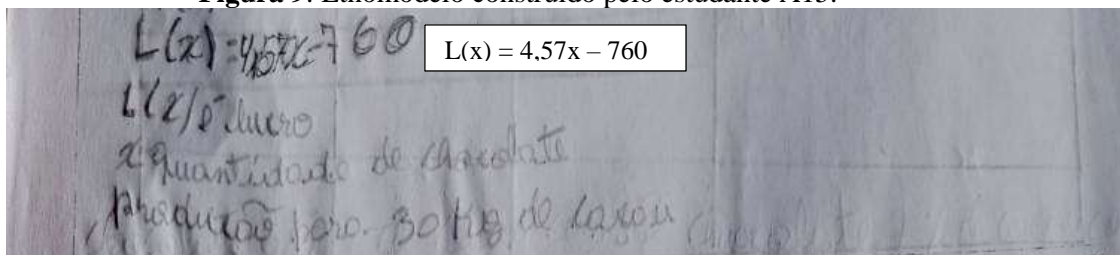 Figura 9. Etnomodelo construído pelo estudante A15.
L(x) = 4,57x - 760
L(x) = 4,57x – 760
L(x) é lucro
x quantidade de chocolate
produção para 30 kg de cacau